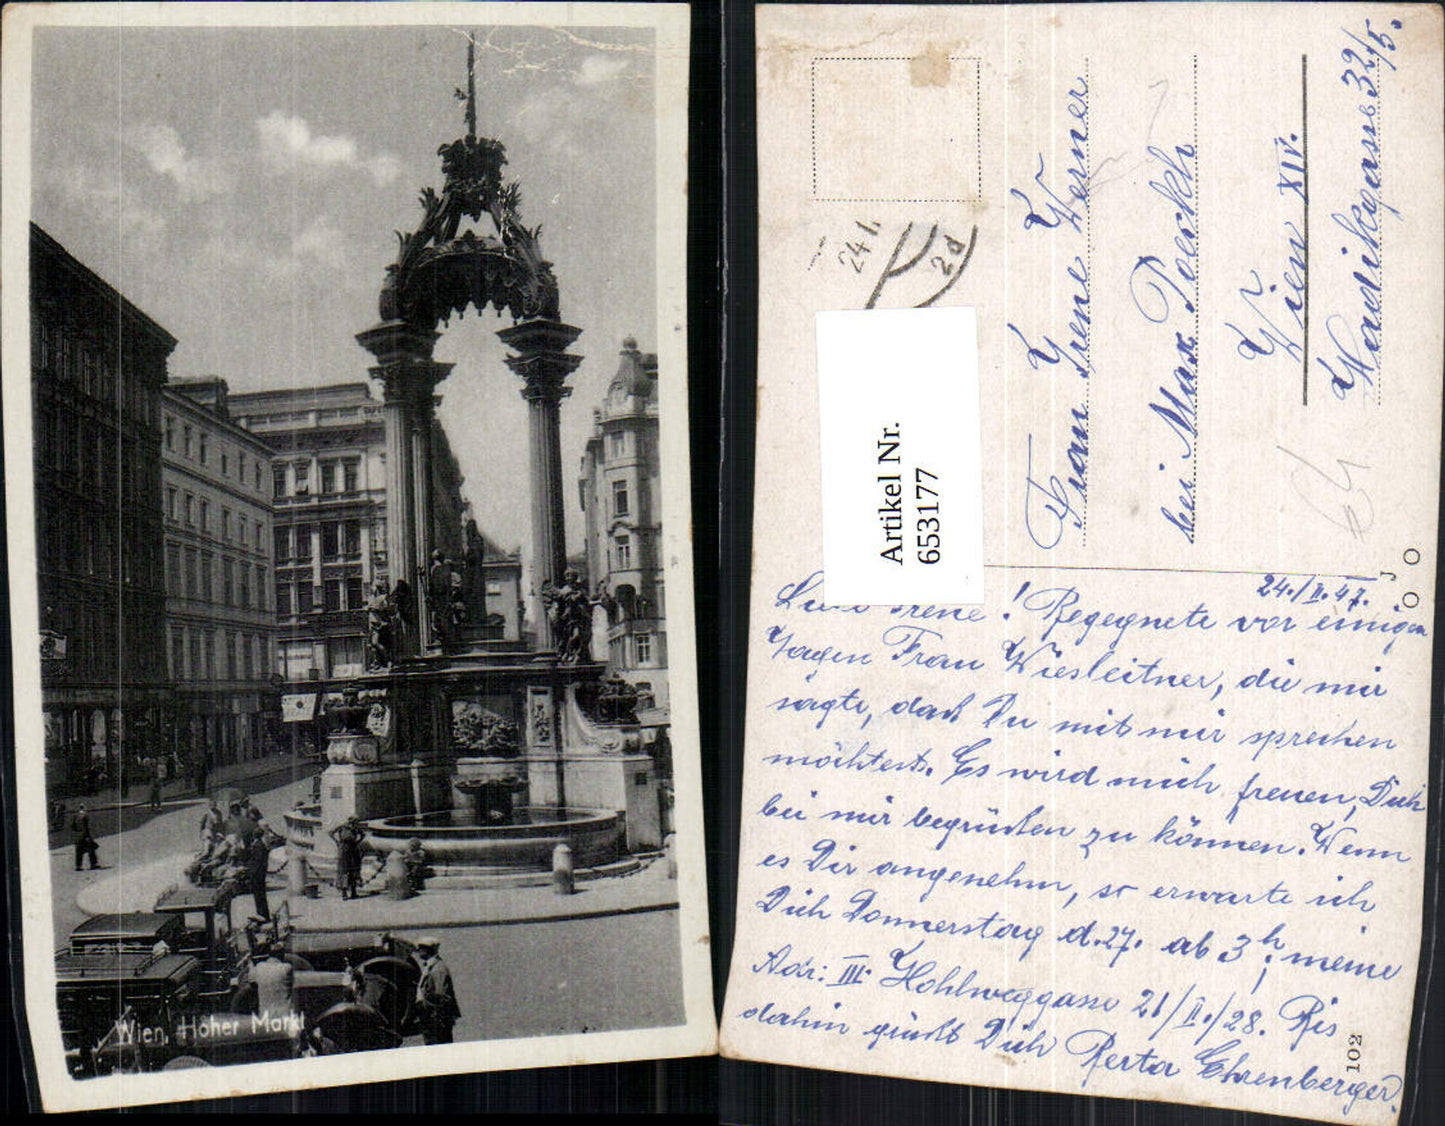 Wien, Hoher Markt
24 1.
2d
Artikel Nr.
653177
Frau Irene Werner
bei Max Poeckh
Wien XIV.
Hadikgasse 32/5.
24./II.47.
Irene! Begegnete vor einigen
Tagen Frau Wiesleitner, die mir
sagte, daß Du mit mir sprechen
möchtest. Es wird mich freuen, Dich
bei mir begrüßen zu können. Wenn
es Dir angenehm, so erwarte ich
Dich Donnerstag d. 27. ab 3h; meine
Adr: III. Hohlweggasse 21/II./28. Bis
dahin grüßt Dich Berta Ehrenberger.
102